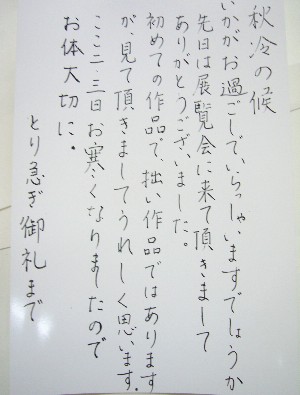 秋冷の候
いかがお過ごしでいらっしゃいますでしょうか
先日は展覧会に来て頂きまして
ありがとうございました。
初めての作品で、拙い作品ではあります
が、見て頂きましてうれしく思います。
ここ二、三日お寒くなりましたので
お体大切に。
とり急ぎ御礼まで